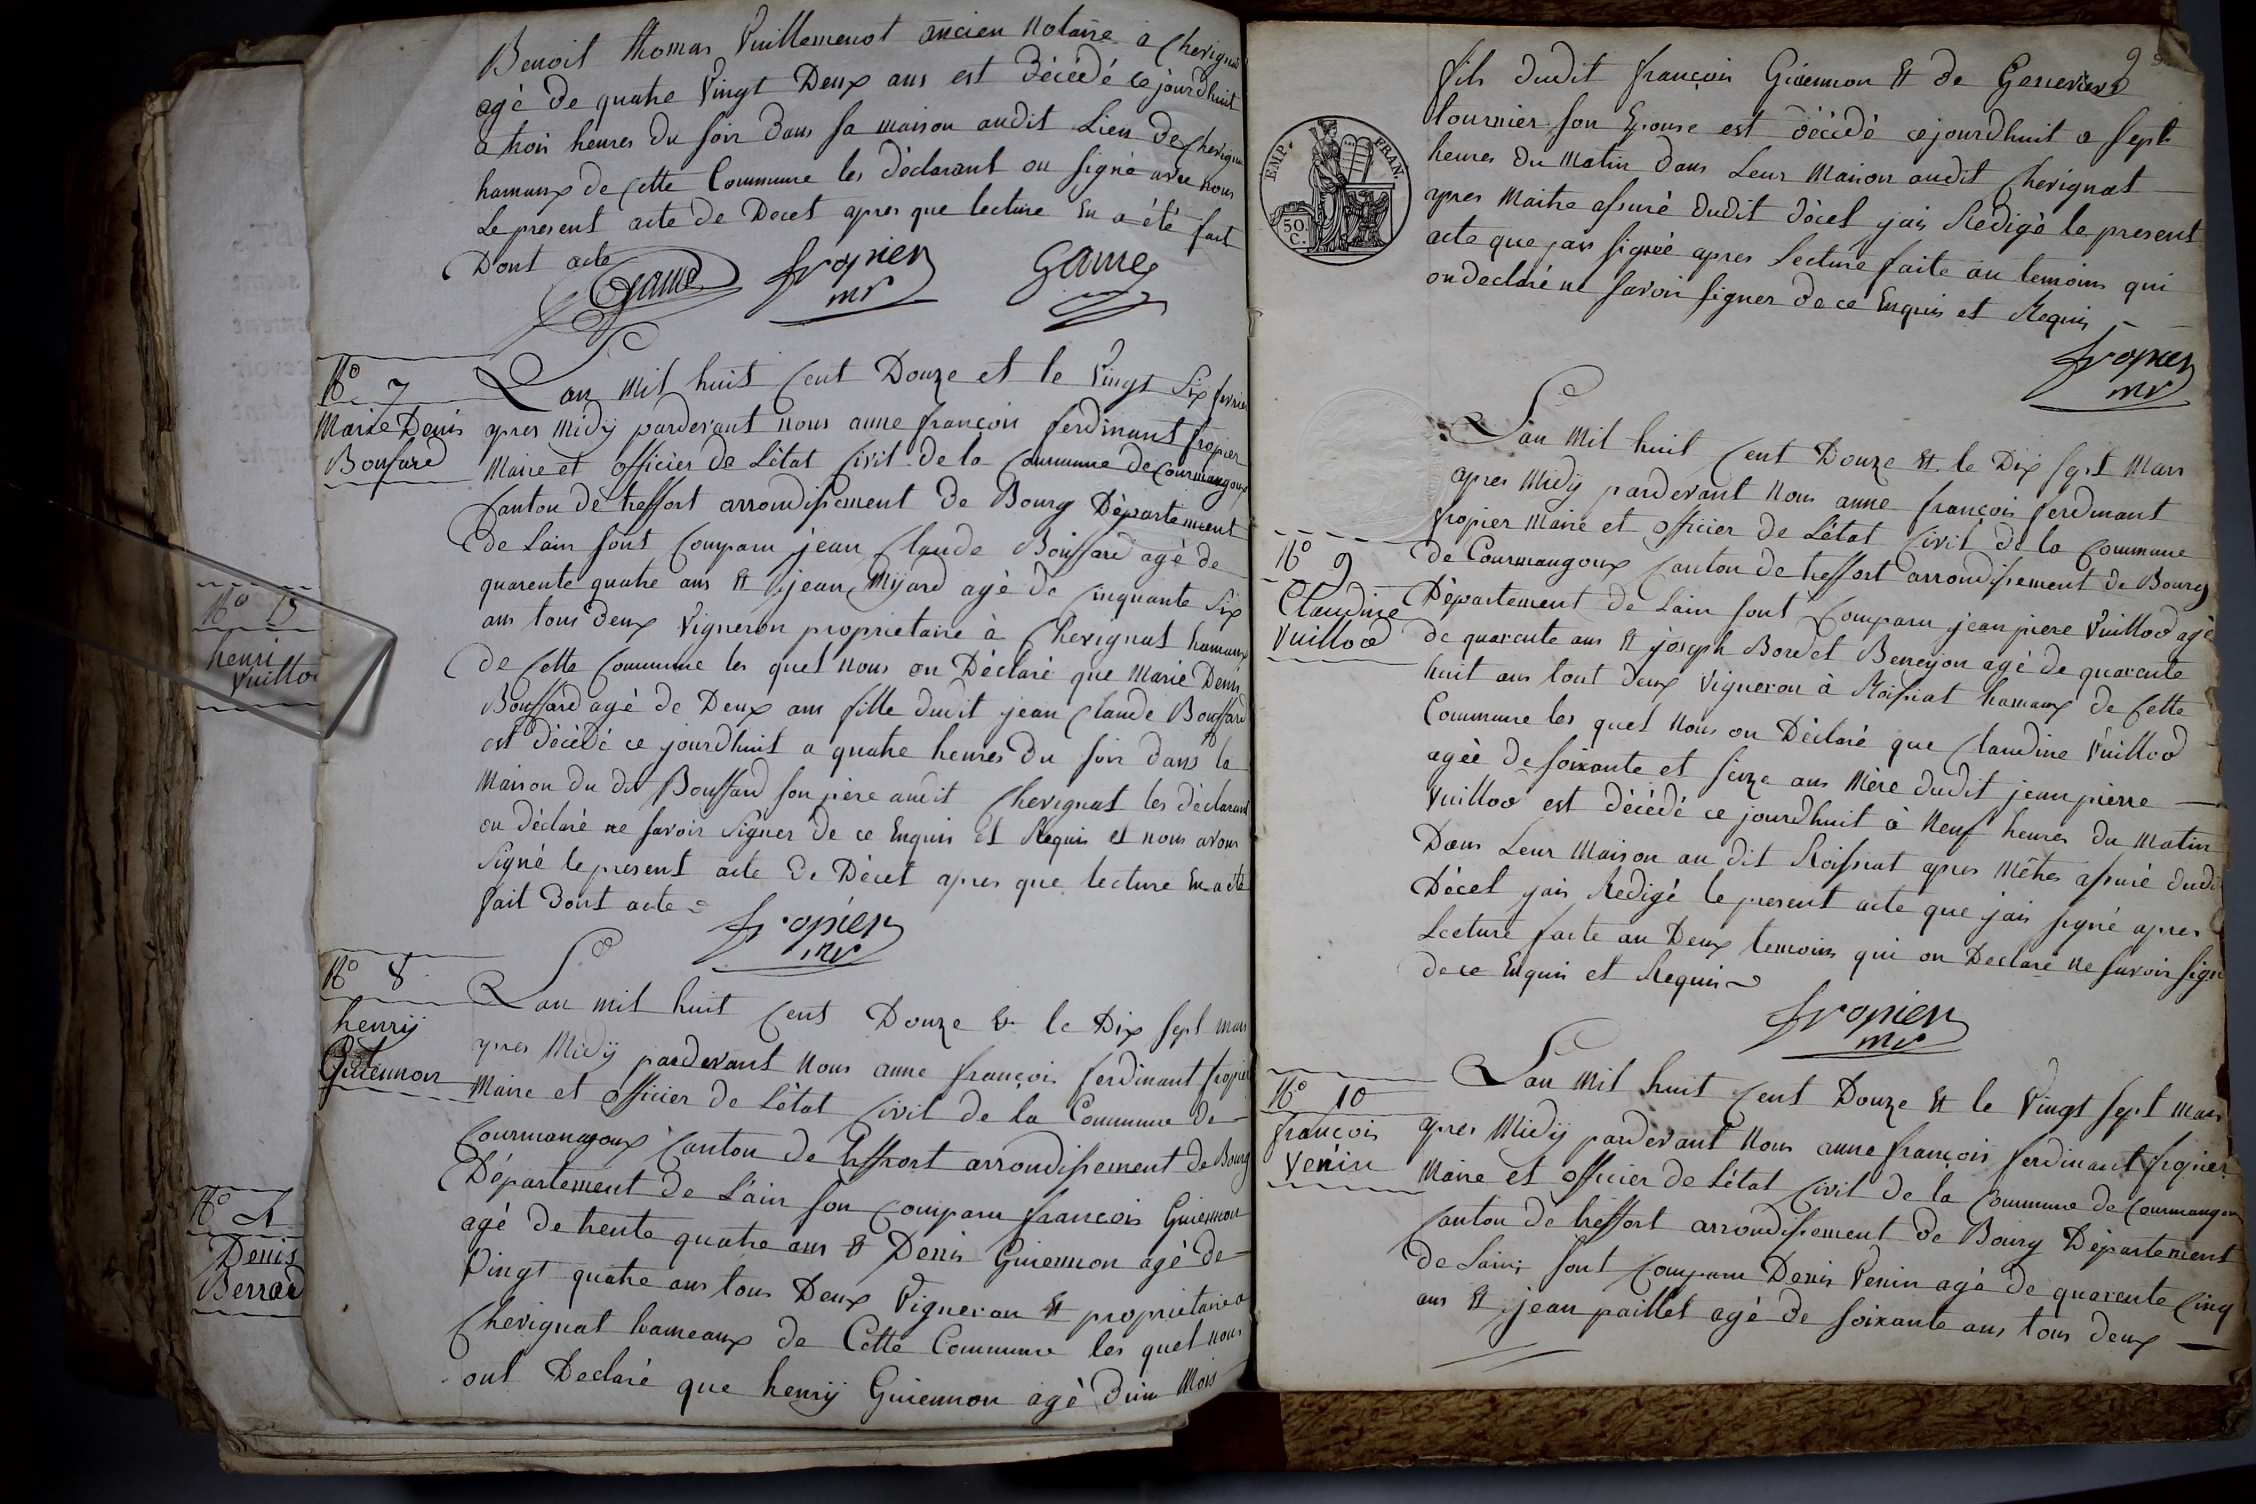 Benoit thomas Vuillemenot ancien Notaire a Chevignat
agé de quatre Vingt Deux ans est décédé ce jourdhuit
a trois heures du soir dans sa maison audit Lieu de Chevignat
hamaux de Cette Commune les déclarant on signé avec nous
Le present acte de Decet apres que lecture en a été fait
Dont acte
Game fropier Game
mr
No 7
Marie Denis
Bouffard
Lan mil huit Cent Douze et le Vingt Six fevrier
apres midy pardevant nous anne françois ferdinant fropier
Maire et officier de L'état Civil de la Commune de Courmangoux
Canton de treffort arrondissement de Bourg Département
de Lain sont Comparu jean Claude Bouffard agé de
quarente quatre ans et jean Mijard agé de Cinquante Six
ans tous deux Vigneron proprietaire à Chevignat hamaux
de Cette Commune les quel nous on Déclaré que Marie Denis
Bouffard agé de Deux ans fille dudit jean Claude Bouffard
est décédé ce jourdhuit a quatre heures du soir dans la
Maison du dit Bouffard son pere audit Chevignat les déclarant
on déclaré ne savoir signer de ce Enquis et Requis et nous avons
Signé le present acte de Décet apres que lecture En a été
fait dont acte
fropier
mr
No 8
henrij
Guiennon
Lan mil huit Cent Douze et le Dix sept mars
apres Midij pardevant nous anne françois ferdinant fropier
Maire et officier de L'état Civil de la Commune de
Courmangoux Canton de treffort arrondissement de Bourg
Département de L'ain son Comparu françois Guiennon
agé de trente quatre ans et Denis Guiennon agé de
Vingt quatre ans tous Deux Vigneron et proprietaire a
Chevignat hameaux de Cette Commune les quel nous
ont Declaré que henrij Guiennon agé d'un Mois
9
fils dudit françois Guiennon et de Genevieve
tournier son Epouse est décédé ce jourdhuit a sept
heures du Matin dans Leur Maison audit Chevignat
apres Maitre assuré dudit décet jais Redigé le present
acte que jais signée apres Lecture faite au temoins qui
on declaré ne savoir signer de ce Enquis et Requis
fropier
mr
EMP. FRAN.
50.
C.
No 9
Claudine
Vuillod
Lan Mil huit Cent Douze et le Dix sept Mars
apres Midy pardevant Nous anne françois ferdinant
fropier Maire et officier de L'état Civil de la Commune
de Courmangoux Canton de treffort arrondissement de Bourg
Département de Lain sont Comparu jean piere Vuillod agé
de quarente ans et joseph Bordet Berreyon agé de quarente
huit ans tout deux Vigneron à Roissiat hamaux de Cette
Commune les quel Nous on Déclaré que Claudine Vuillod
agée de soixante et seize ans Mère dudit jean pierre
Vuillod est décédé ce jourdhuit à Neuf heures du Matin
Dans Leur Maison au dit Roissiat apres Mêtre assuré dudi
Décet jais Redigé le present acte que jais signé apres
Lecture faite au Deux temoins qui on Declaré ne savoir signe
de ce Enquis et Requis
fropier
mr
No 10
françois
Venin
Lan Mil huit Cent Douze et le Vingt sept Mars
apres Midij pardevant Nous anne françois ferdinant fropier
Maire et officier de L'état Civil de la Commune de Courmangoux
Canton de treffort arrondissement de Bourg Département
de Lain sont Comparu Denis Venin agé de quarente Cinq
ans et jean paillet agé de soixante ans tous deux
No 15
henri
Vuillo
No
Denis
Berrad